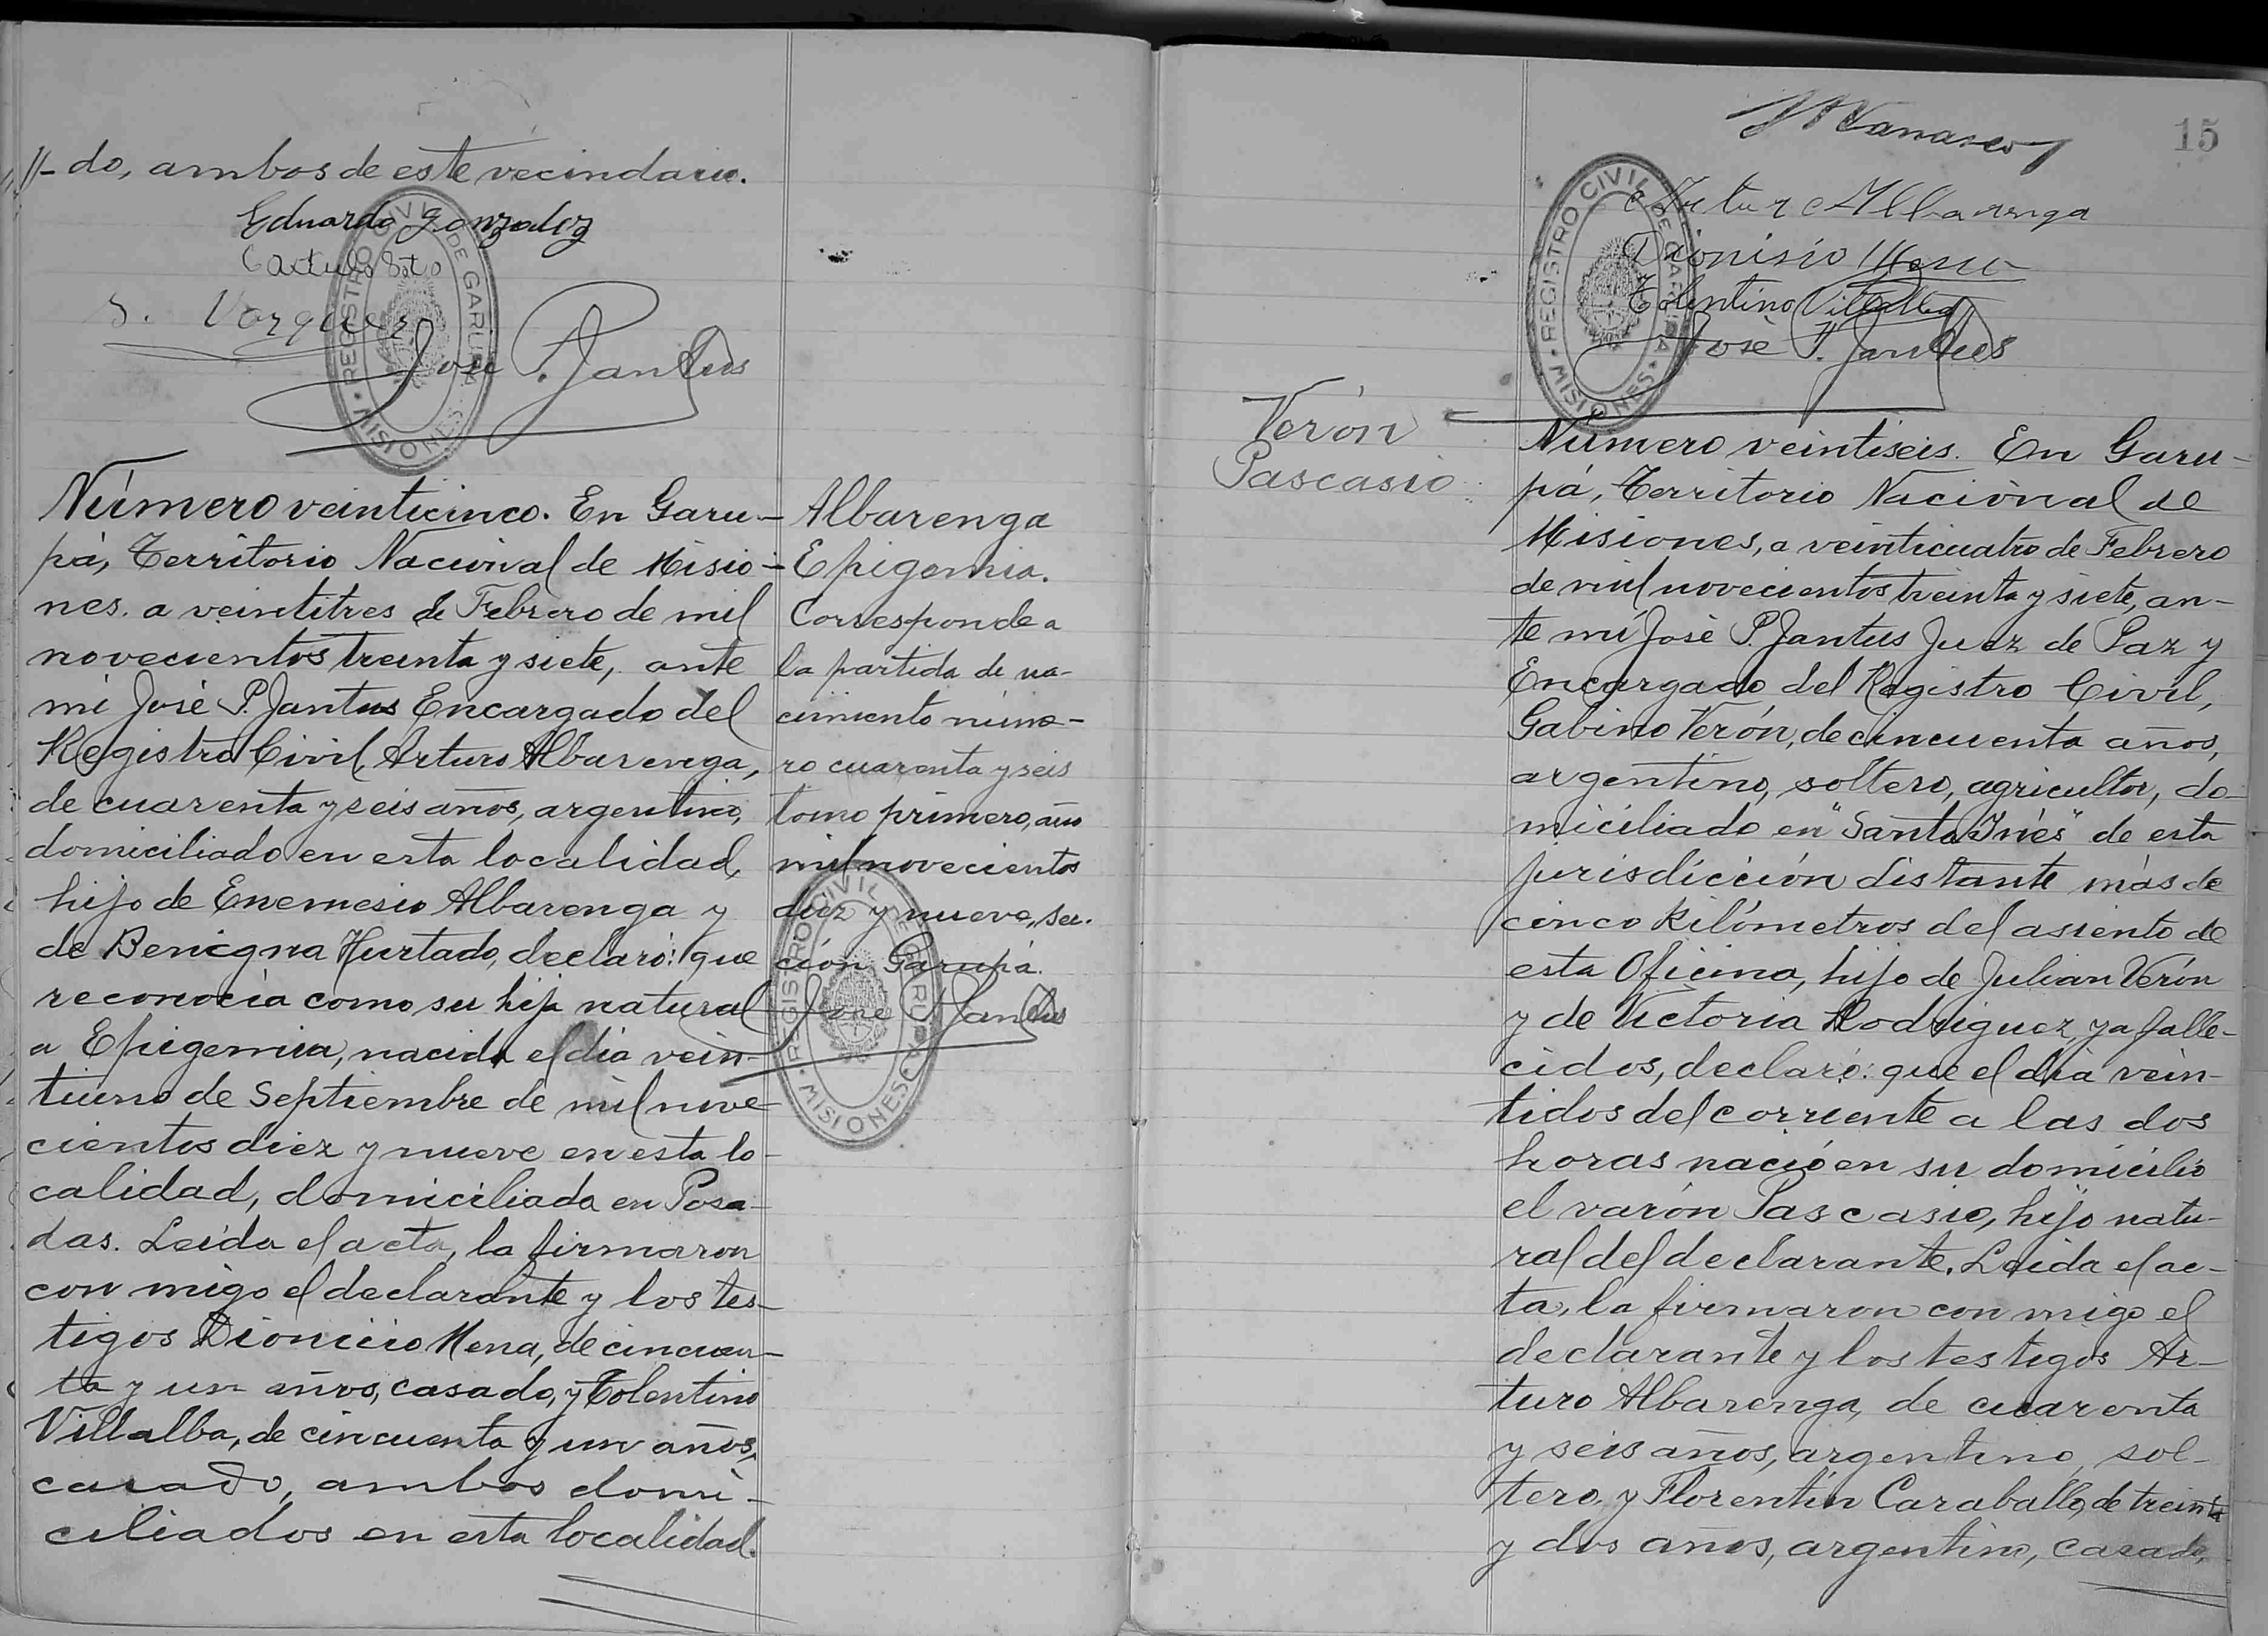 //- do, ambos de este vecindario.
Eduardo Gonzalez
Soto
S. Vazquez
José P. Jantus
REGISTRO CIVIL DE GARUPA
MISIONES
Número veinticinco. En Garu-
pá, Territorio Nacional de Misio-
nes. a veintitres de Febrero de mil
novecientos treinta y siete, ante
mi José P. Jantus Encargado del
Registro Civil, Arturo Albarenga,
de cuarenta y seis años, argentino,
domiciliado en esta localidad,
hijo de Enemesio Albarenga y
de Benigna Hurtado, declaró: que
reconocía como su hija natural
a Epigemia, nacida el día vein-
tiuno de Septiembre de mil nove-
cientos diez y nueve en esta lo-
calidad, domiciliada en Posa-
das. Leída el acta, la firmaron
con migo el declarante y los tes-
tigos Dionicio Mena, de cincuen-
ta y un años, casado, y Tolentino
Villalba, de cincuenta y un años,
casado, ambos domi-
ciliados en esta localidad.
Albarenga
Epigemia.
Corresponde a
la partida de na-
cimiento núme-
ro cuarenta y seis
tomo primero, año
mil novecientos
diez y nueve, sec.
ción Garupá.
José P. Jantus
REGISTRO CIVIL DE GARUPA
MISIONES
15
Arturo Albarenga
Dionisio Mena
Tolentino Villalba
José P. Jantus
REGISTRO CIVIL DE GARUPA
MISIONES
Verón
Pascasio
Número veintiseis. En Garu-
pá, Territorio Nacional de
Misiones, a veinticuatro de Febrero
de mil novecientos treinta y siete, an-
te mí José P. Jantus Juez de Paz y
Encargado del Registro Civil,
Gabino Verón, de cincuenta años,
argentino, soltero, agricultor, do-
miciliado en "Santa Inés" de esta
jurisdicción distante más de
cinco kilómetros del asiento de
esta Oficina, hijo de Julian Verón
y de Victoria Rodriguez, ya falle-
cidos, declaró: que el día vein-
tidos del corriente a las dos
horas nació en su domicilio
el varón Pascasio, hijo natu-
ral del declarante. Leída el ac-
ta, la firmaron con migo el
declarante y los testigos Ar-
turo Albarenga, de cuarenta
y seis años, argentino, sol-
tero, y Florentín Caraballo, de treinta
y dos años, argentino, casado,